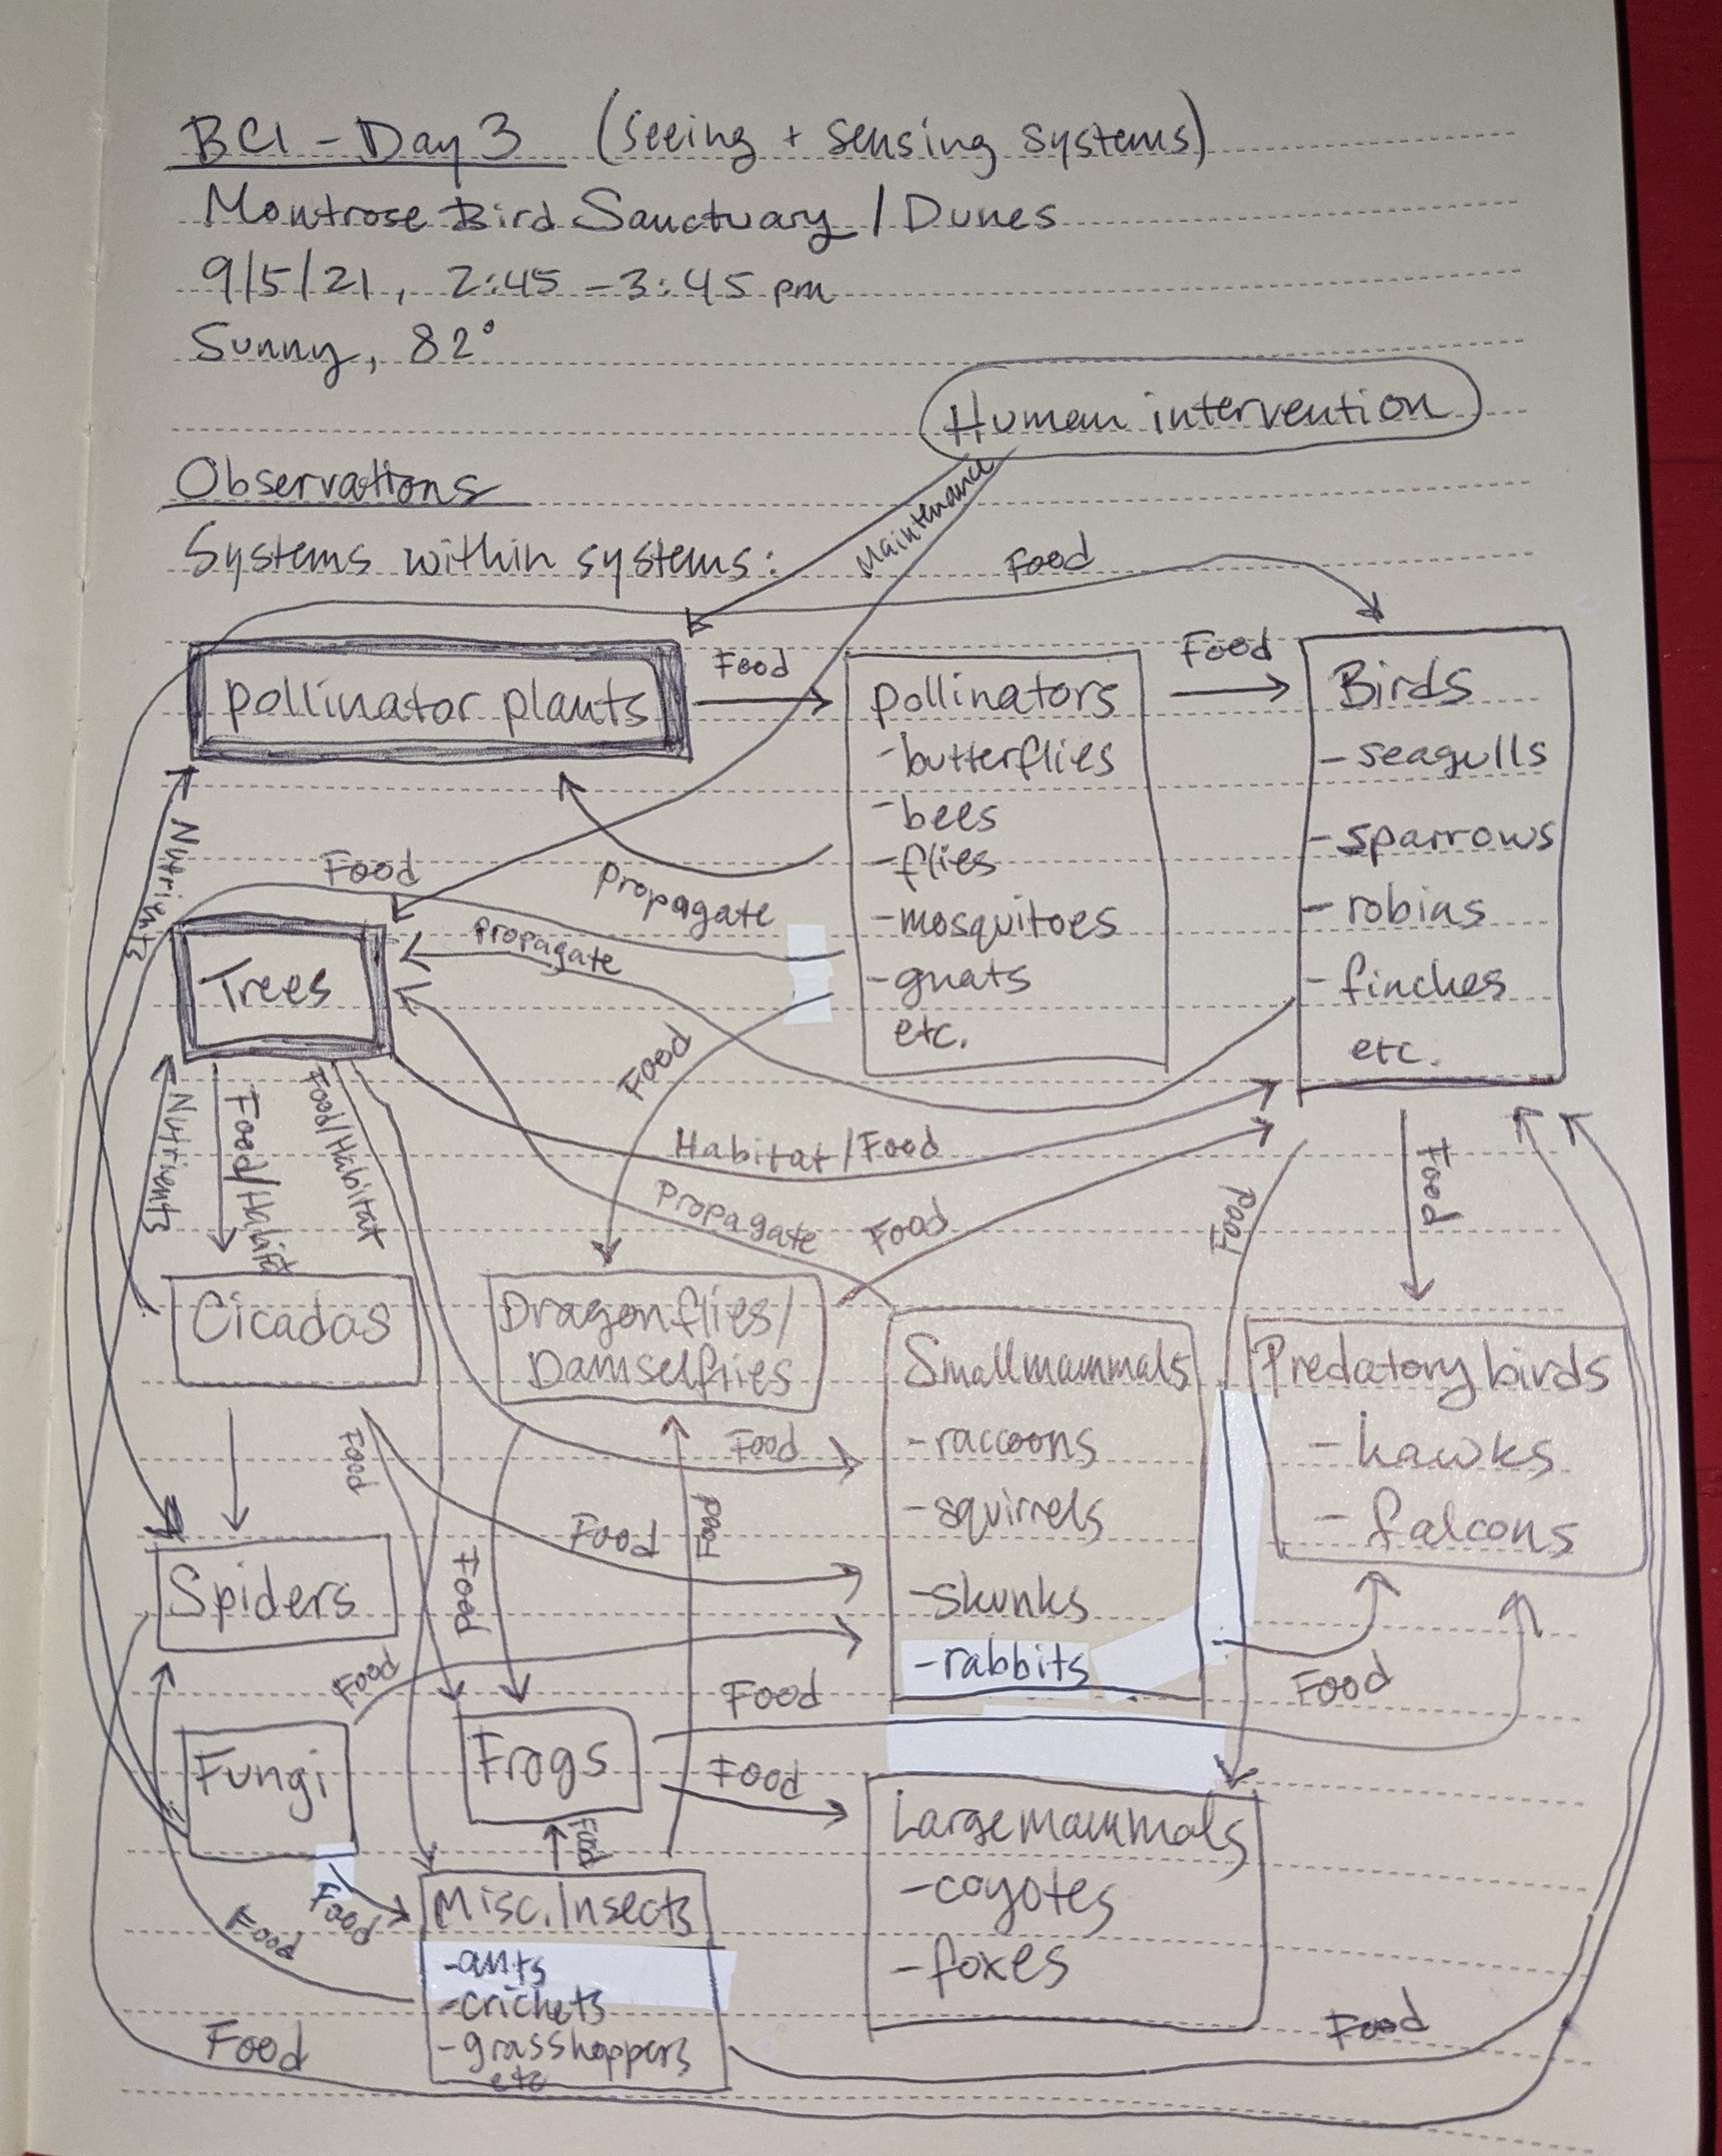 BCI - Day 3 (seeing + sensing systems)
Montrose Bird Sanctuary / Dunes
9/5/21, 2:45 - 3:45 pm
Sunny, 82°
Human intervention
Observations
Maintenance
Systems within systems:
Food
pollinator plants
Food
pollinators
-butterflies
-bees
-flies
-mosquitoes
-gnats
etc.
Food
Birds
-seagulls
-sparrows
-robins
-finches
etc.
Nutrients
Food
propagate
propagate
Trees
Food
Nutrients
Food/Habitat
Food/Habitat
Habitat/Food
Propagate
Food
Food
Food
Cicadas
Dragonflies/
Damselflies
Small mammals
-raccoons
-squirrels
-skunks
-rabbits
Predatory birds
-hawks
-falcons
Food
Food
Food
Food
Food
Spiders
Food
Food
Food
Fungi
Frogs
Food
Food
Large mammals
-coyotes
-foxes
Food
Food
Misc. Insects
-ants
-crickets
-grasshoppers
etc
Food
Food